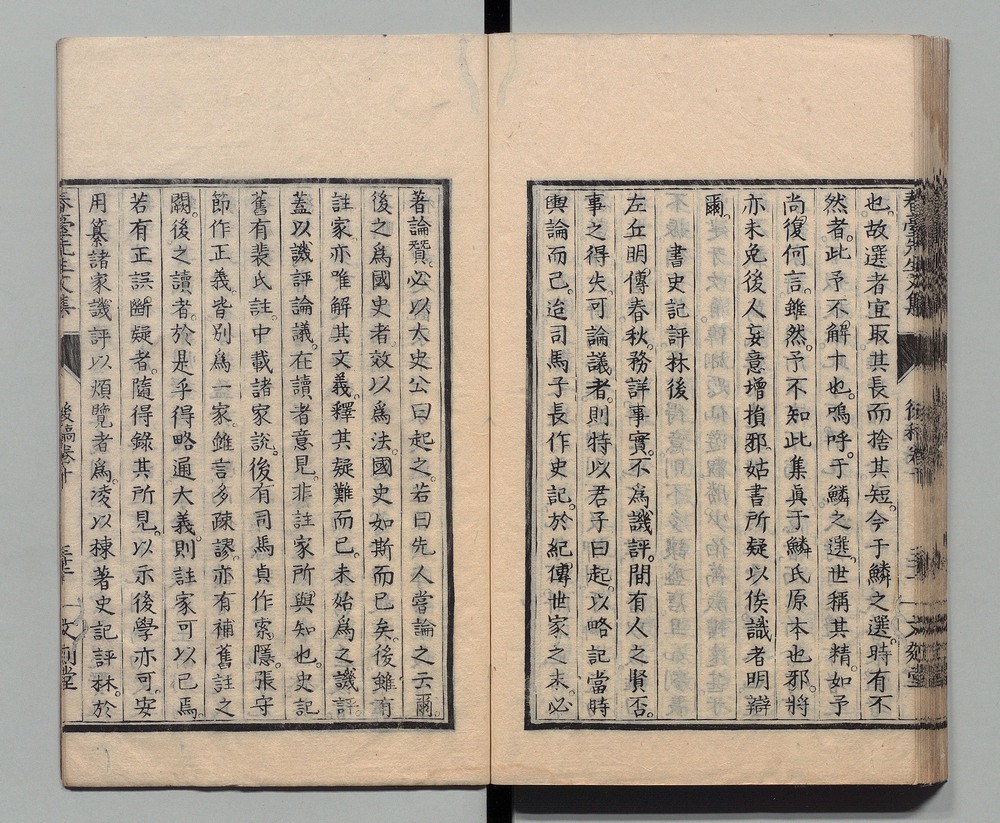 也。故選者宜取其長而捨其短。今于鱗之選。時有不
然者。此予不解十也。嗚呼。于鱗之選。世稱其精。如予
尚復何言。雖然。予不知此集眞于鱗氏原本也邪。將
亦未免後人妄意增損邪。姑書所疑以俟識者明辯
爾。
書史記評林後
左丘明傳春秋。務詳事實。不爲譏評。間有人之賢否。
事之得失。可論議者。則特以君子曰起。以略記當時
輿論而已。迨司馬子長作史記。於紀傳世家之末。必
著論贊。必以大史公曰起之。若曰先人嘗論之云爾。
後之爲國史者。效以爲法。國史如斯而已矣。後雖有
註家。亦唯解其文義。釋其疑難而已。未始爲之譏評。
蓋以譏評論議。在讀者意見。非註家所與知也。史記
舊有裴氏註。中載諸家說。後有司馬貞作索隱。張守
節作正義。皆別爲一家。雖言多疎謬。亦有補舊註之
闕。後之讀者。於是乎得略通大義。則註家可以已焉。
若有正誤斷疑者。隨得錄其所見。以示後學亦可。安
用纂諸家譏評以煩覽者爲。凌以棟著史記評林。於
春臺先生文集
後稿卷十
文刻堂